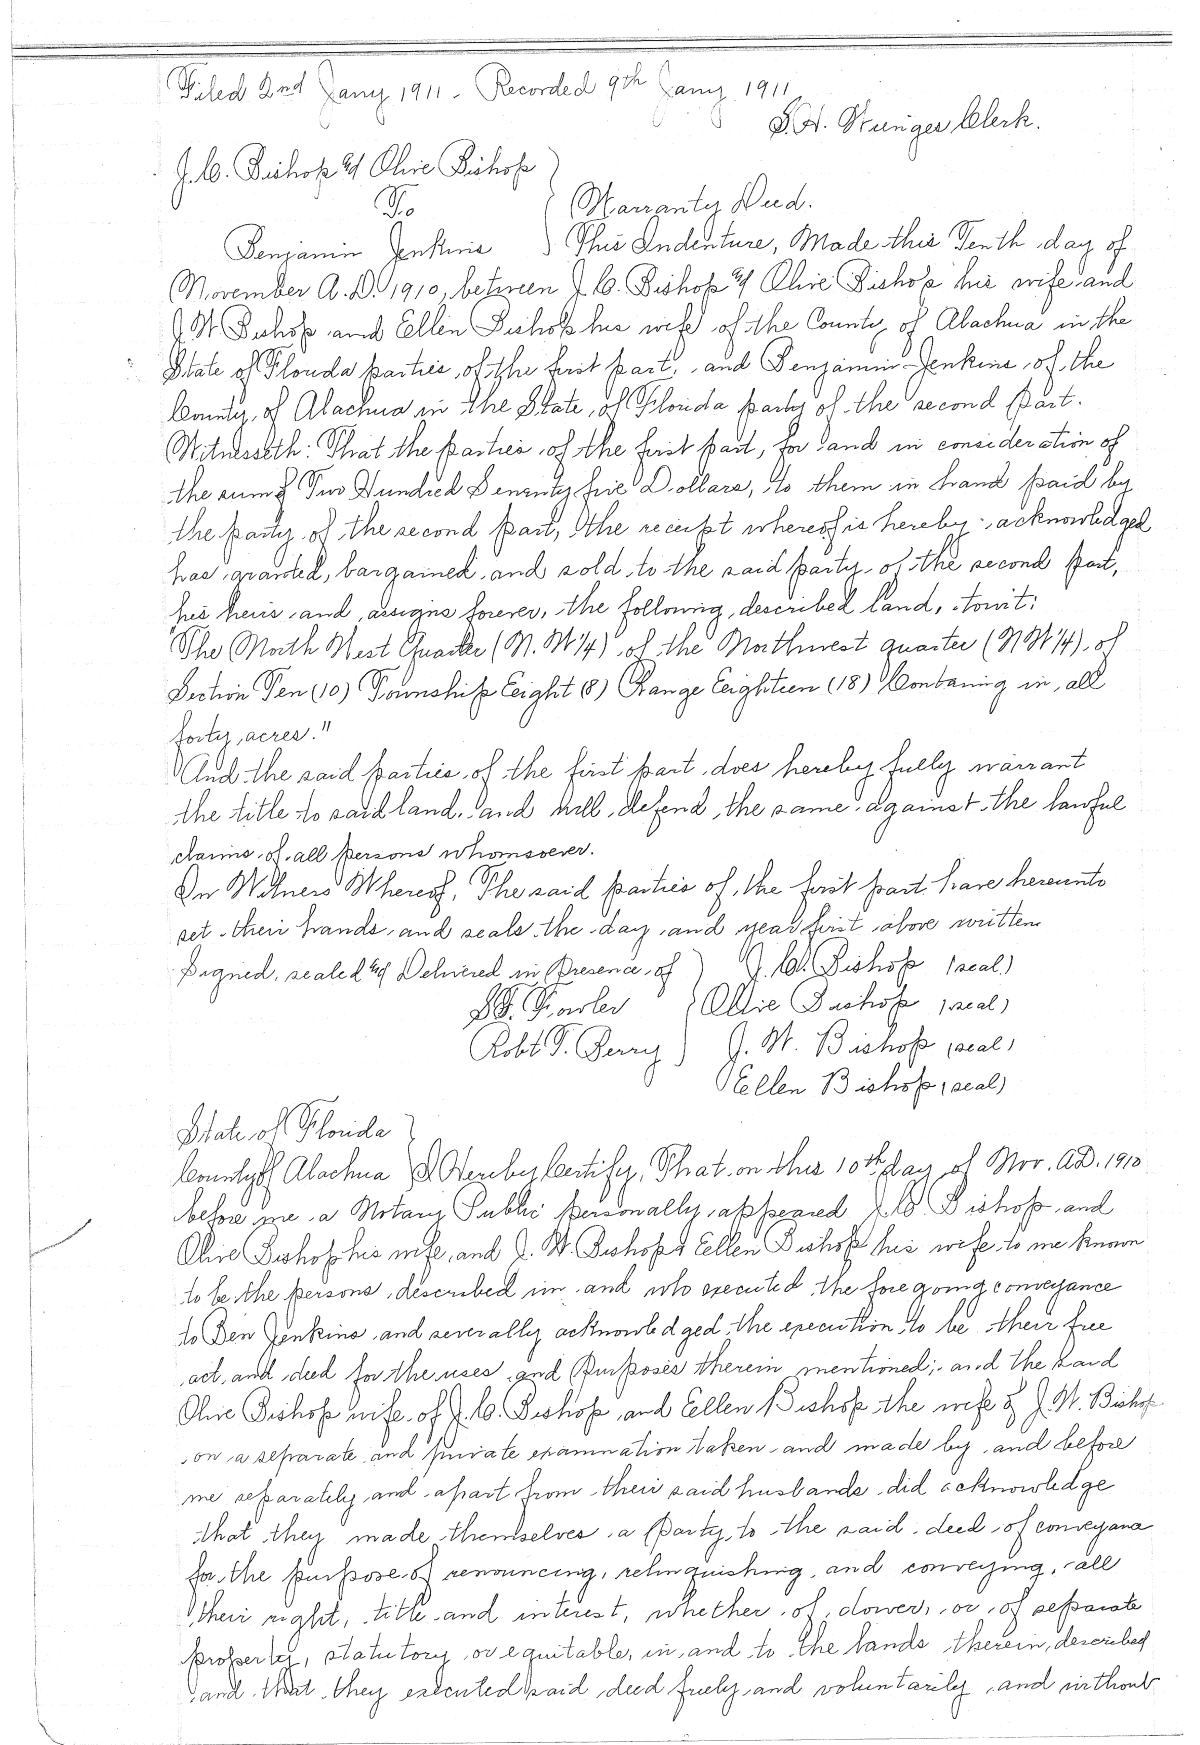 Filed 2nd Jany 1911 - Recorded 9th Jany 1911
S.H. Wienges Clerk.
J. C. Bishop & Olive Bishop
To
Warranty Deed.
Benjamin Jenkins } This Indenture, Made this Tenth day of
November A.D. 1910, between J. C. Bishop & Olive Bishop his wife and
J W Bishop and Ellen Bishop his wife of the County of Alachua in the
State of Florida parties of the first part, and Benjamin Jenkins of the
County of Alachua in the State of Florida party of the second Part.
Witnesseth: That the parties of the first part, for and in consideration of
the sum of Two Hundred Seventy five Dollars, to them in hand paid by
the party of the second part, the receipt whereof is hereby acknowledged
has granted, bargained and sold to the said party of the second part,
his heirs and assigns forever, the following described land, towit:
The North West Quarter (N. W 1/4) of the Northwest quarter (N W 1/4) of
Section Ten (10) Township Eeight (8) Range Eeighteen (18) Contaning in all
forty acres."
And the said parties of the first part does hereby fully warrant
the title to said land and will defend the same against the lawful
claims of all persons whomsoever.
In Witness Whereof, The said parties of the first part have hereunto
set their hands and seals the day and year first above written
Signed, sealed & Delivered in Presence of } J. C. Bishop (seal)
S.F. Fowler } Ollie Bishop (seal)
Robt T. Berry } J. W. Bishop (seal)
Eellen Bishop (seal)
State of Florida }
County of Alachua } I Hereby Certify, That on this 10th day of Nov. A.D. 1910
before me a Notary Public personally appeared J. C. Bishop and
Olive Bishop his wife, and J. W. Bishop & Eellen Bishop his wife to me known
to be the persons described in and who executed the foregoing conveyance
to Ben Jenkins and severally acknowledged the execution to be their free
act and deed for the uses and Purposes therein mentioned; and the said
Olive Bishop wife of J. C. Bishop and Eellen Bishop the wife of J. W. Bishop
on a separate and private examination taken and made by and before
me separately and apart from their said husbands did acknowledge
that they made themselves a party to the said deed of conveyance
for the purpose of renouncing, relinquishing and conveying, all
their right, title and interest, whether of dower, or of separate
property, statutory or equitable, in and to the lands therein described
and that they executed said deed freely and voluntarily and without